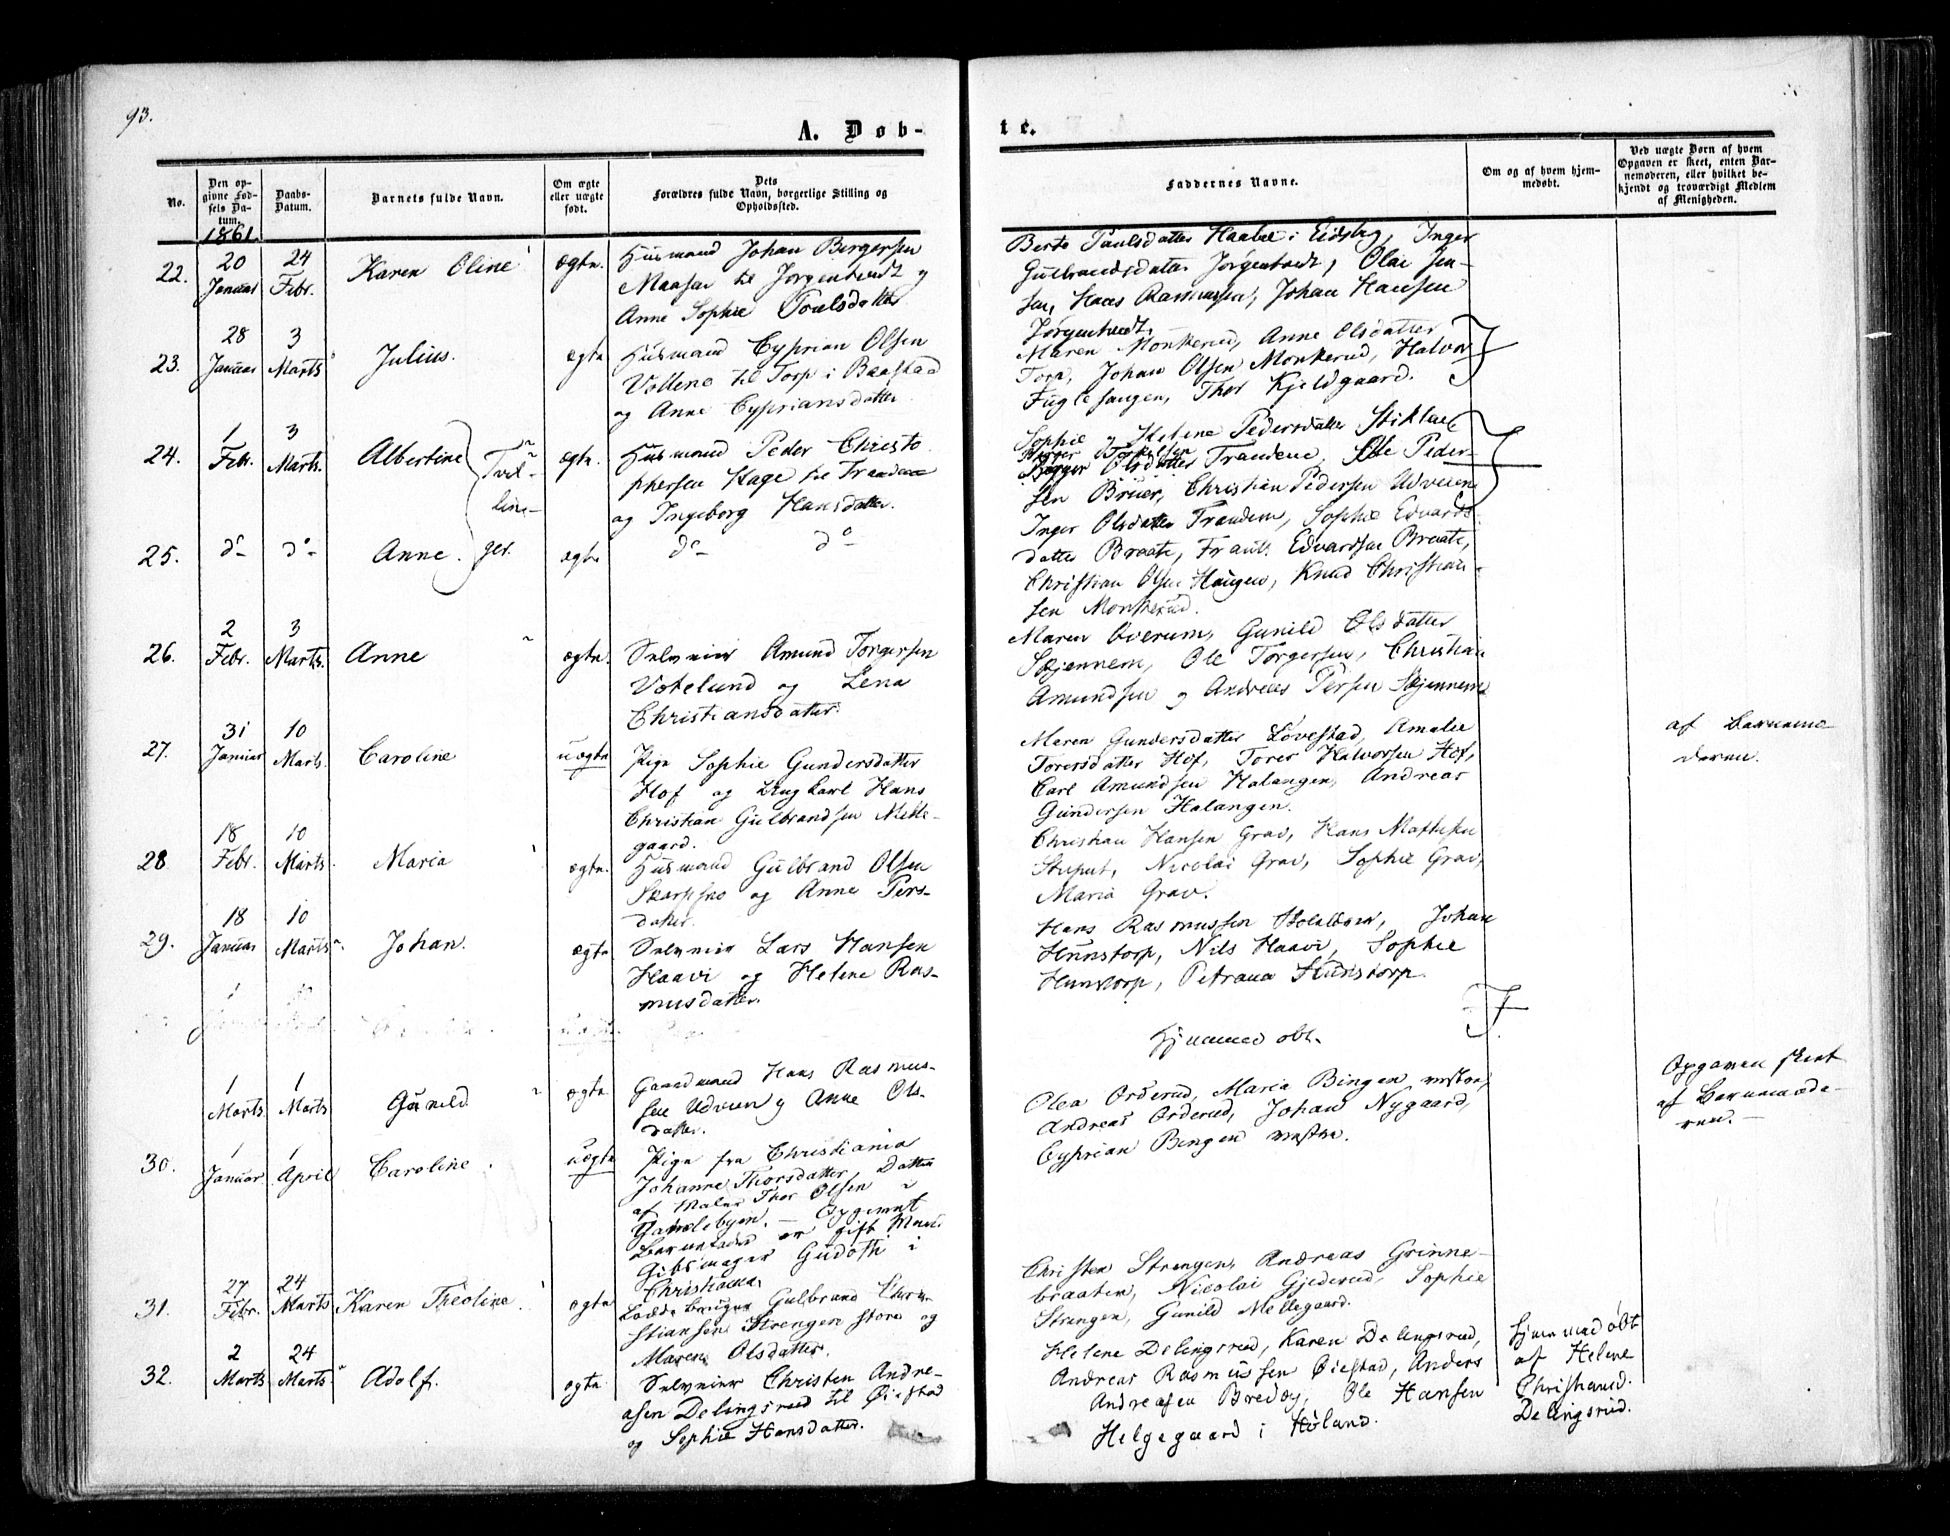 93.
A. Døb-
te.
No.
Den op-
givne Fød-
sels Da-
tum.
Daabs-
Datum.
Barnets fulde Navn.
Om ægte
eller uægte
født.
Dets
Forældres fulde Navn, borgerlige Stilling og
Opholdssted.
Faddernes Navne.
Om og af hvem hjem-
medøbt.
Ved uægte Børn af hvem
Opgaven er skeet, enten Bar-
nemoderen, eller hvilket be-
kjendt og troværdigt Medlem
af Menigheden.
1861.
22.
20
Januar
24
Febr.
Karen Oline
ægte.
Husmand Johan Børgersen
til og
Anne Sophie Poulsdatter
Berte Paulsdatter i Eidsbg, Inger
Gulbrandsdatter Olai Jen-
sen, Hans Rasmussen, Johan Hansen
23.
28
Januar
3
Marts
Julius.
ægte
Husmand Cyprian Olsen
Vollene til Torp i Baastad
og Anne Cypriansdatter
Maren Monkerud, Anne Olsdatter
Torp, Johan Olsen Monkerud, Halvor
Fuglesangen, Thor Kjeldgaard.
24.
1
Febr.
3
Marts.
Albertine
Tvil-
ægte.
Husmand Peder Christo
phersen Hage til Trandem
og Ingeborg Hansdatter.
Sophie og Helene Pedersdatter
Olsdatter Trandem, Ole Peder-
sen Christian Pedersen Udveien
25.
do
do
Anne.
linger.
ægte
do do
Inger Olsdatter Trandem, Sophie Edvards-
datter Braate, Frants Edvardsen Braate,
Christian Olsen Haugen, Knud Christian-
sen Monkerud.
26.
2
Febr.
3
Marts.
Anne
ægte.
Selveier Amund Torgersen
Votelund og Lena
Christiansdatter.
Maren Overum, Gunild Olsdatter
Skjennem, Ole Torgersen, Christian
Amundsen og Andreas Persen Skjennem
27.
31
Januar
10
Marts.
Caroline
uægte
Pige Sophie Gundersdatter
Hof og Ungkarl Hans
Christian Gulbrandsen Melle-
gaard.
Maren Gundersdatter Lövestad, Amalie
Torersdatter Hof, Torer Halvorsen Hof,
Carl Amundsen Halangen, Andreas
Gundersen Halangen.
af Barnemo
deren.
28
18
Febr.
10
Marts.
Maria
ægte.
Husmand Gulbrand Olsen
Skarpsno og Anne Pers-
datter.
Christian Hansen Grav, Hans
Nicolai Grav, Sophie Grav,
Maria Grav.
29.
18
Januar
10
Marts
Johan.
ægte
Selveier Lars Hansen
Haavi og Helene Ras-
musdatter.
Hans Rasmussen Johan
Hunstorp, Nils Haavi, Sophie
Hunstorp, Petrana Hunstorp.
1
Marts
1
Marts
Gunild
ægte
Gaardmand Hans Rasmus-
sen Udveien og Anne Ols-
datter.
Hjemmedöbt.
30.
1
Januar
1
April
Caroline.
uægte
Pige fra Christiania
Johanne Thorsdatter, Datter
af Maler Thor Olsen i
Gamlebyen. — Opgivet
Barnefader er gift Mand
Gibsmager Gudothi i
Christiania.
Olea Orderud, Maria Bingen vestre,
Andreas Orderud, Johan Nygaard,
Cyprian Bingen vestre.
Opgaven skeet
af Barnemode-
ren. —
31.
27
Febr.
24
Marts
Karen Theoline.
ægte
Gulbrand Chri-
stiansen Strengen store og
Maren Olsdatter.
Christen Strengen, Andreas Grinne-
braaten, Nicolai Gjederud, Sophie
Strengen, Gunild Mellegaard.
32.
2
Marts
24
Marts
Adolf.
ægte.
Selveier Christen Andre-
asen Delingsrud til Öiestad
og Sophie Hansdatter.
Helene Delingsrud, Karen Delingsrud,
Andreas Rasmussen Öiestad, Anders
Andreasen Bredøy, Ole Hansen
Helgegaard i Höland.
Hjemmedöbt
af Helene
Christians.
Delingsrud.